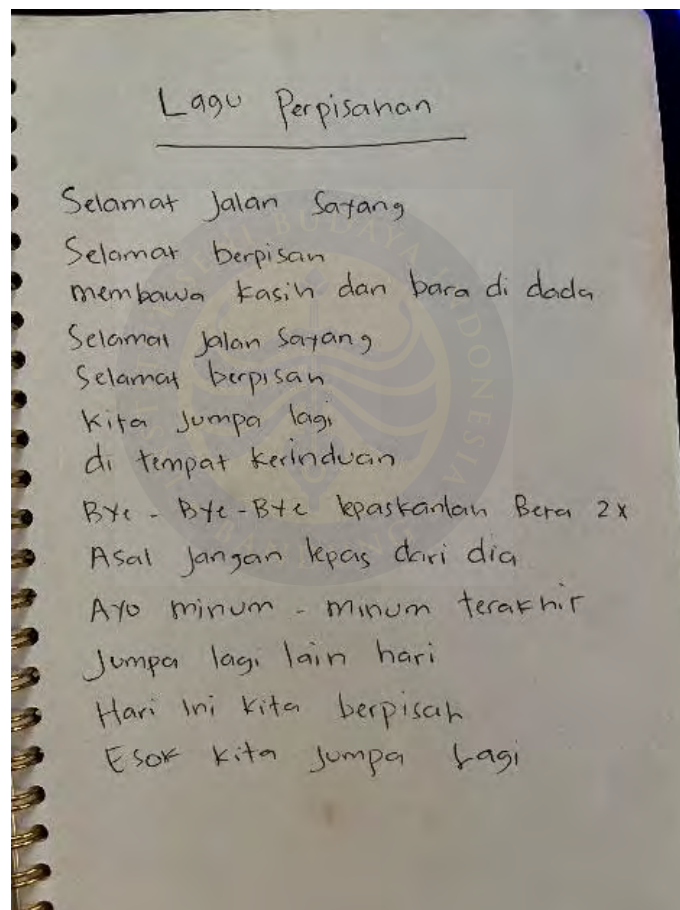 Lagu Perpisahan
Selamat Jalan Sayang
Selamat berpisah
membawa kasih dan bara di dada
Selamat Jalan Sayang
Selamat berpisah
Kita Jumpa lagi
di tempat kerinduan
Bye - Bye - Bye lepaskanlah Bera 2x
Asal Jangan lepas dari dia
Ayo minum - minum terakhir
Jumpa lagi lain hari
Hari Ini Kita berpisah
Esok Kita Jumpa Lagi